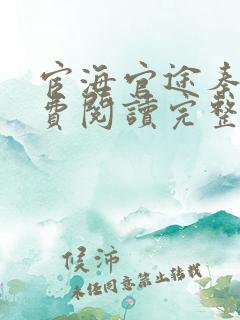 官海官途秦
費閱讀完整
候沛
未经同意禁止转载